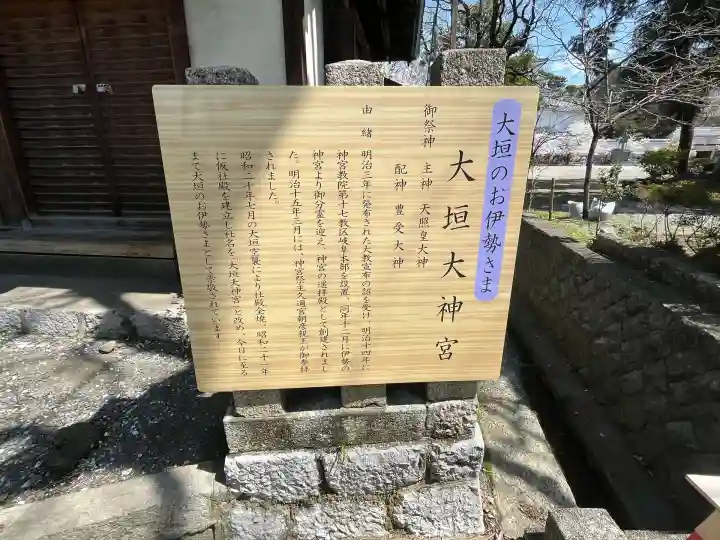 大垣のお伊勢さま
大垣大神宮
御祭神 主神 天照皇大神
配神 豊受大神
由緒 明治三年に発布された大教宣布の詔を受け、明治十四年に
神宮教院第十七教区岐阜本部を設置、同年十二月に伊勢の
神宮より御分霊を迎え、神宮の遥拝殿として創建されまし
た。明治十五年三月には、神宮祭主久邇宮朝彦親王が御参拝
されました。
昭和二十年七月の大垣空襲により社殿全焼、昭和二十一年
に仮社殿を建立し社名を「大垣大神宮」と改め、今日に至る
まで大垣のお伊勢さまとして崇敬されています。